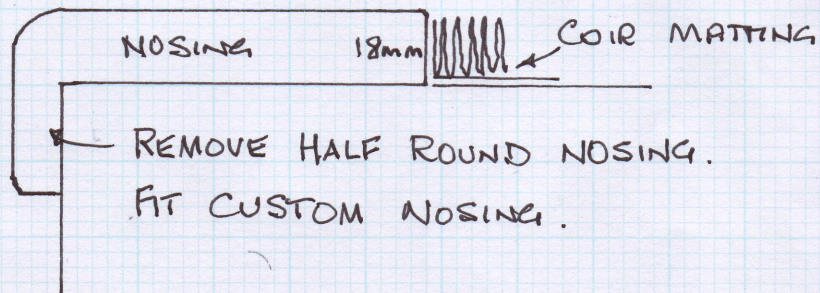 NOSING 18mm COIR MATTING
REMOVE HALF ROUND NOSING.
FIT CUSTOM NOSING.